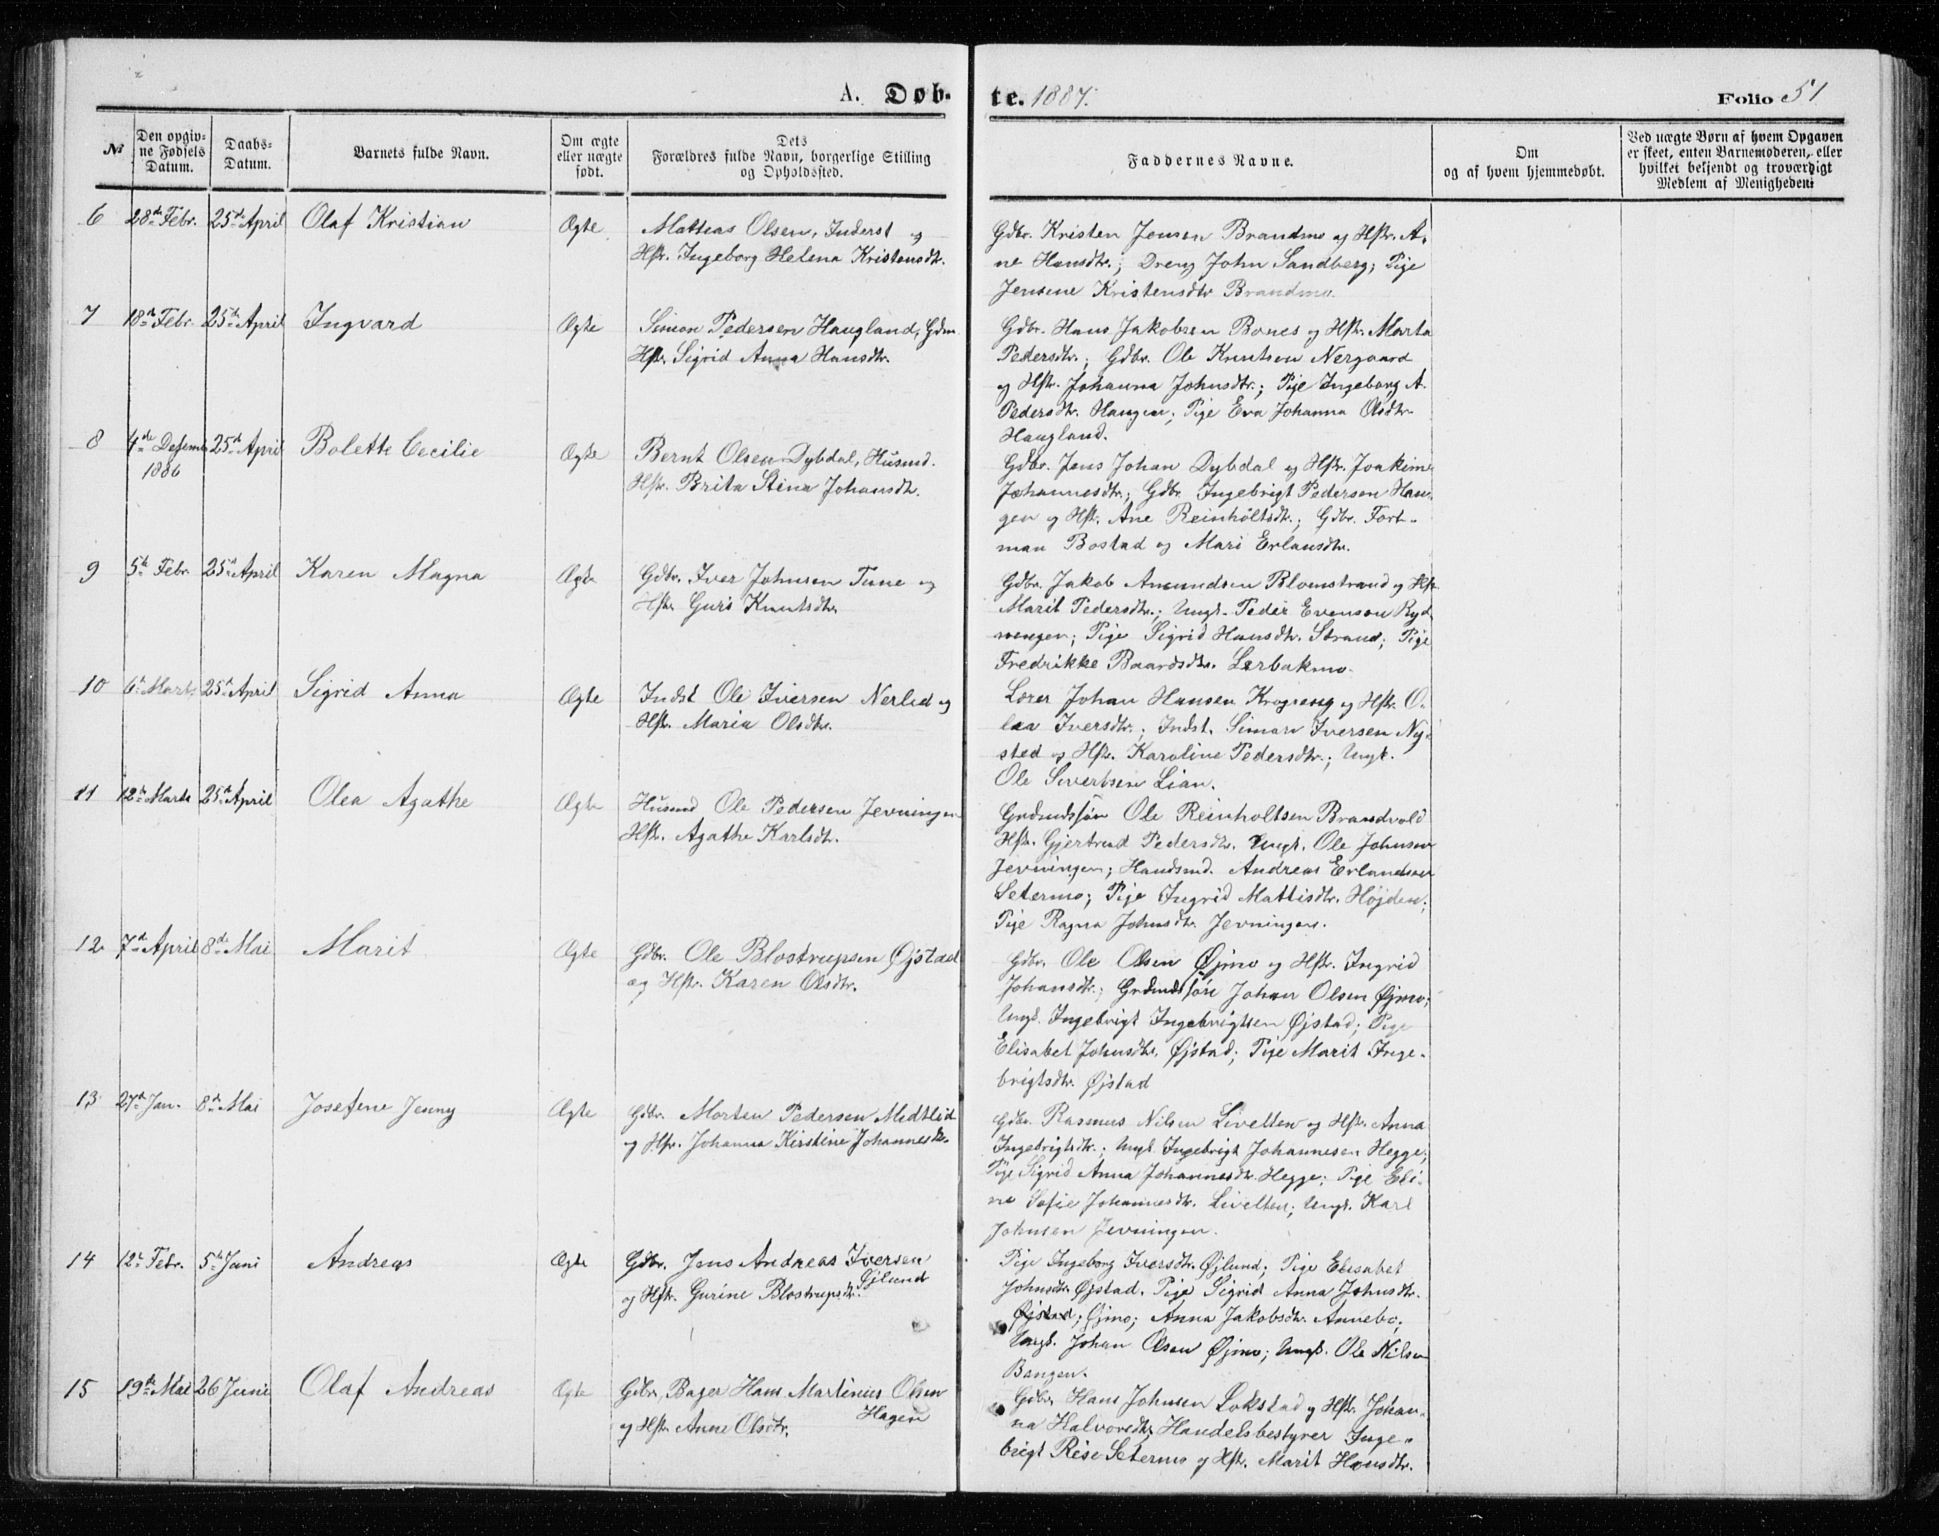 A. Døb- te. 1887. Folio 51
№
Den opgiv-
ne Fødsels
Datum.
Daabs-
Datum.
Barnets fulde Navn.
Om ægte
eller uægte
født.
Dets
Forældres fulde Navn, borgerlige Stilling
og Opholdssted.
Faddernes Navne.
Om
og af hvem hjemmedøbt.
Ved uægte Børn af hvem Opgaven
er skeet, enten Barnemoderen, eller
hvilket bekjendt og troværdigt
Medlem af Menigheden:
6 28de Febr. 25de April Olaf Kristian Ægte
Mattias Olsen, Inderst og
Hst. Ingeborg Helena Kristensdtr.
Gdbr. Kristen Jensen Brandmo og Hstr. A-
ne Hansdtr.; Dreng John Sandberg; Pige
Jensine Kristensdtr Brandmo.
7 18de Febr. 25de April Ingvard Ægte
Simon Pedersen Haugland, Gdm.
Hstr. Sigrid Anna Hansdtr.
Gdbr. Hans Jakobsen Bones og Hstr. Marta
Pedersdtr.; Gdbr. Ole Knutsen Nergaard
og Hstr. Johanna Johnsdtr.; Pige Ingeborg A.
Pedersdtr. Haugen; Pige Eva Johanna Olsdtr.
Haugland.
8 4de Desember 25de April Bolette Cecilie Ægte
1886
Bernt Olsen Dybdal, Husmd.
Hstr. Brita Stina Johansdtr.
Gdbr. Jens Johan Dybdal og Hstr. Joakime
Johannesdtr.; Gdbr. Ingebrigt Pedersen Hau-
gen og Hst. Ane Reinholtsdtr.; Gdbr. Fort-
man Bostad og Mari Erlansdtr.
9 5te Febr. 25de April Karen Magna Ægte
Gdbr. Iver Johnsen Tune og
Hstr. Guri Knutsdtr.
Gdbr. Jakob Amundsen Blomstrand og Hst.
Marit Pedersdtr.; Ungk. Peder Evenson Ryd-
ningen; Pige Sigrid Hansdtr. Strand; Pige
Fredrikke Baardsdtr. Lerbakmo.
10 6te Marts 25de April Sigrid Anna Ægte
Indst Ole Iversen Nerlid og
Hstr. Maria Olsdtr.
Lærer Johan Hansen Krogseng og Hstr. O-
lea Iversdtr.; Indst. Simon Iversen Ny-
sted og Hstr. Karoline Pedersdtr.; Ungk.
Ole Sivertsen Lian.
11 12te Marts 25de April Olea Agathe Ægte
Husmd Ole Pedersen Jevningen
Hstr. Agathe Karlsdtr.
Grdmdssøn Ole Reinholtsen Brandvold
Hstr. Gjertrud Pedersdtr. Ungk. Ole Johnsen
Jevningen; Handsmd. Andreas Erlandsen
Setermo; Pige Ingrid Mattisdtr. Højden;
Pige Ragna Johnsdtr Jevningen.
12 7de April 8de Mai Marit Ægte
Gdbr. Ole Blostrupsen Øjstad
og Hstr. Karen Olsdtr.
Gdbr. Ole Olsen Øjmo og Hstr. Ingrid
Johansdtr.; Grdmdssøn Johan Olsen Øjmo;
Ungk. Ingebrigt Ingebrigtsen Øjstad; Pige
Elisabet Johnsdtr. Øjstad; Pige Marit Inge-
brigtsdtr. Øjstad
13 27de Jan. 8de Mai Josefine Jenny Ægte
Gdbr. Morten Pedersen Midtlid
og Hstr. Johanna Kirstine Johannesdtr.
Gdbr. Rasmus Nilsen Livelten og Hstr. Anna
Ingebrigtsdtr.; Ungk. Ingebrigt Johannesen Hegge;
Pige Sigrid Anna Johannesdtr. Hegge; Pige Eli-
ne Sofie Johannesdtr. Livelten; Ungk. Karl
Johnsen Jevningen.
14 12te Febr. 5te Juni Andreas Ægte
Gdbr. Jens Andreas Iversen
Øjlund
og Hstr. Gurine Blostrupsdtr.
Pige Ingeborg Iversdtr. Øjlund; Pige Elisabet
Johnsdtr. Øjstad, Pige Sigrid Anna Johnsdtr.
Øjstad; Øjmo; Anna Jakobsdtr. Annebo;
Ungk. Johan Olsen Øjmo; Ungk. Ole Nilsen
Bangen.
15 19de Mai 26 Juni Olaf Andreas Ægte
Gdbr. Bager Hans Martinius Olsen
Hagen
og Hstr. Anne Olsdtr.
Gdbr. Hans Johnsen Lokstad og Hstr. Johan-
na Halvorsdtr; Handelsbestyrer Inge-
brigt Rise Setermo og Hstr. Marit Hansdtr.